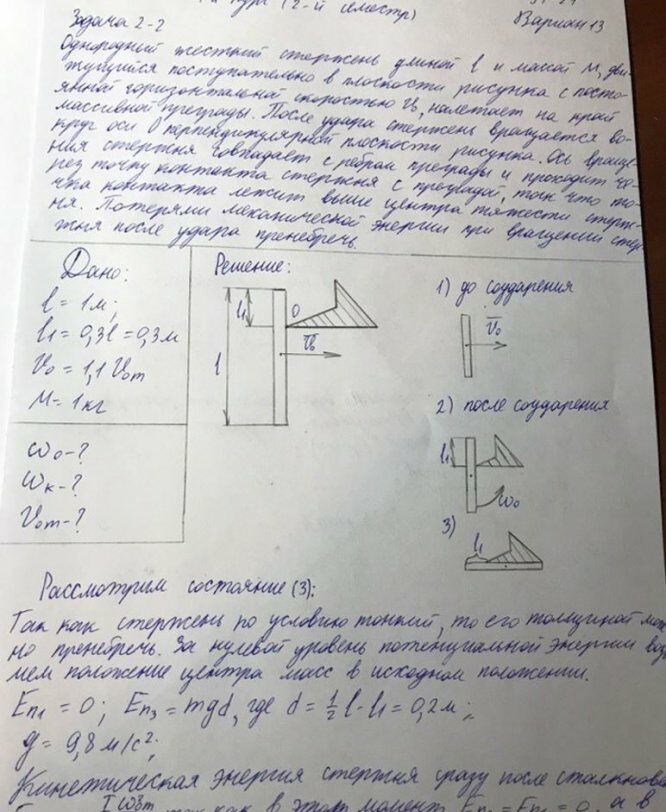 курс (2-й семестр)
Задача 2-2
Вариан 13
Однородный жесткий стержень длиной l и массой М, дви-
жущийся поступательно в плоскости рисунка с посто-
янной горизонтальной скоростью V₀, налетает на край
массивной преграды. После удара стержень вращается во-
круг оси О перпендикулярной плоскости рисунка. Ось враще-
ния стержня совпадает с ребром преграды и проходит че-
рез точку контакта стержня с преградой, так что то-
чка контакта лежит выше центра тяжести стерж-
ня. Потерями механической энергии при вращении стер-
жня после удара пренебречь.
Дано:
l = 1м;
l₁ = 0,3l = 0,3м
V₀ = 1,1 V₀m
М = 1кг
ω₀-?
ωк-?
V₀m-?
Решение:
l₁
О
V₀
l
1) до соударения
V₀
2) после соударения
l₁
ω₀
3)
l₁
Рассмотрим состояние (3):
Так как стержень по условию тонкий, то его толщиной мож-
но пренебречь. За нулевой уровень потенциальной энергии возь
мем положение центра масс в исходном положении.
Eп₁ = 0; Eп₃ = mgd, где d = ½l - l₁ = 0,2м;
g = 9,8 м/с²;
Кинетическая энергия стержня сразу после столкнове
так как в этот момент Eп₂ = Eп₁ = 0, а в